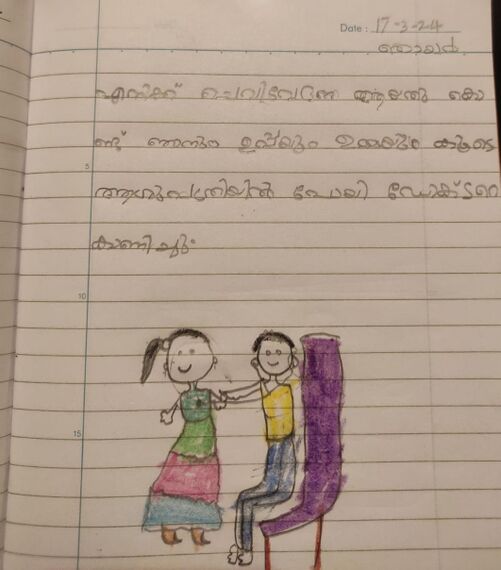 Date: 17-3-24
ഞായർ
എനിക്ക് ചെവിവേദന ആയതു കൊ
ണ്ട് ഞാനും ഉപ്പയും ഉമ്മയും കൂടെ
ആശുപത്രിയിൽ പോയി ഡോക്ടറെ
കാണിച്ചു.
5
10
15